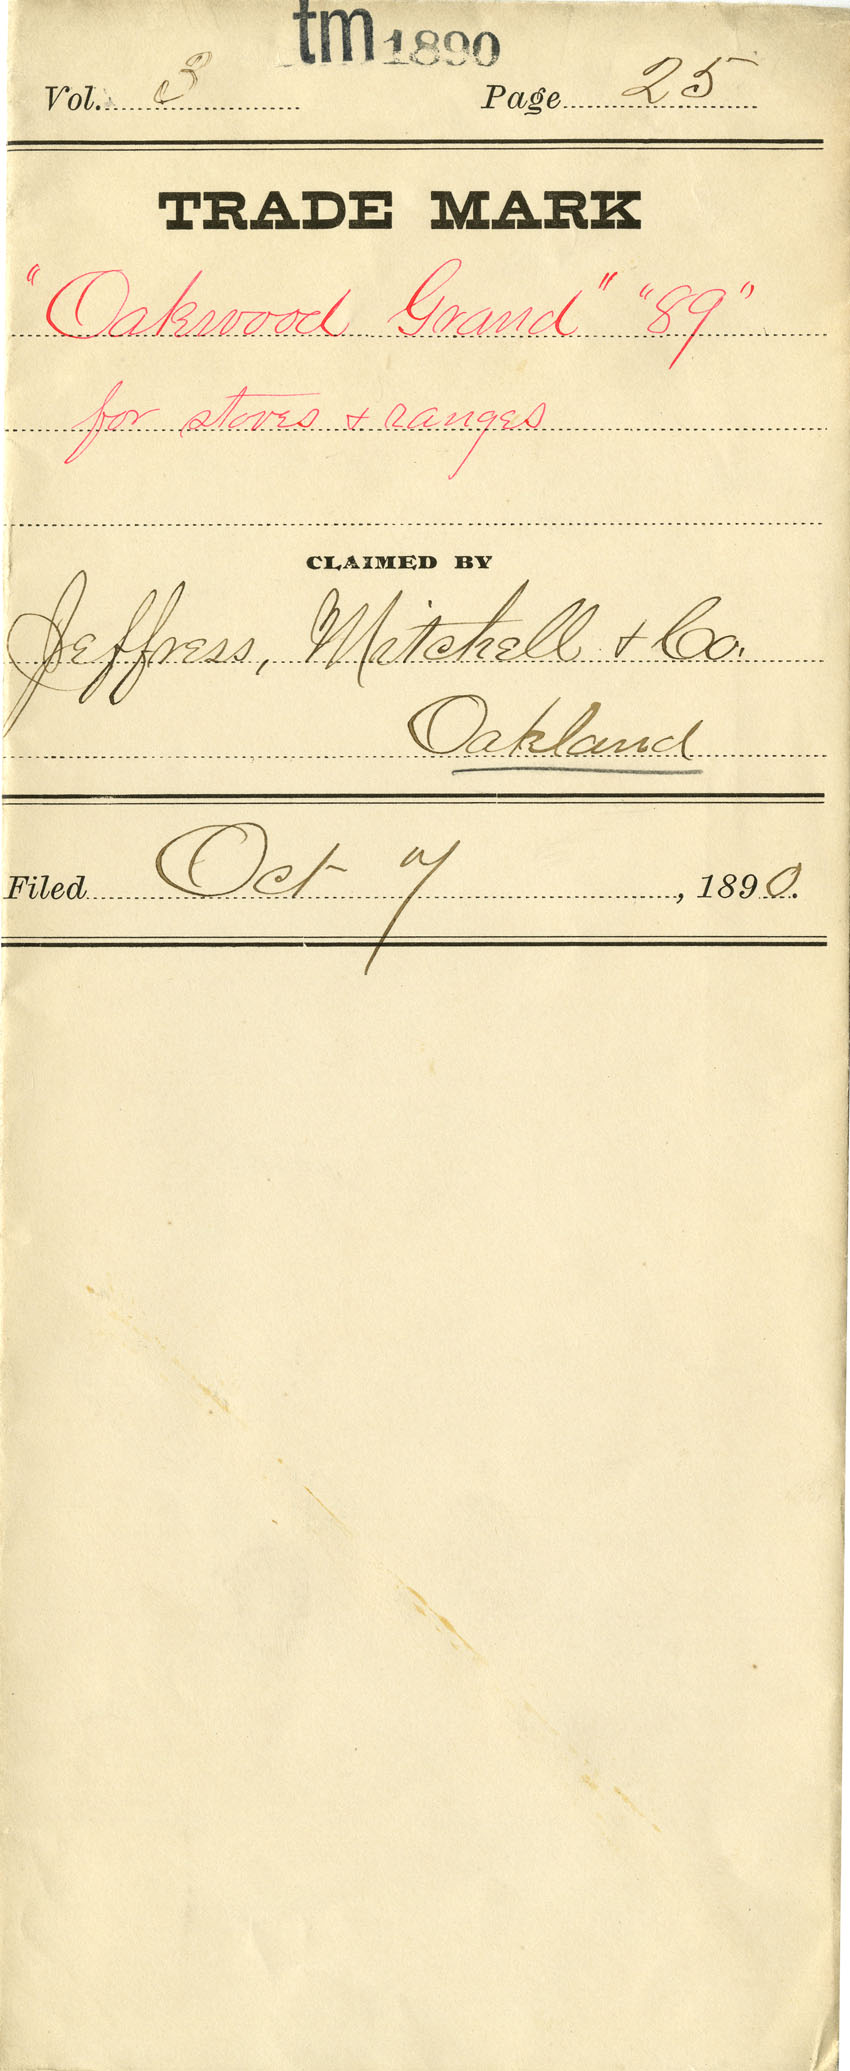 tm 1890
Vol. 3 Page 25
TRADE MARK
"Oakwood Grand" "89"
for stoves & ranges
CLAIMED BY
Jeffress, Mitchell & Co.
Oakland
Filed Oct 7, 1890.